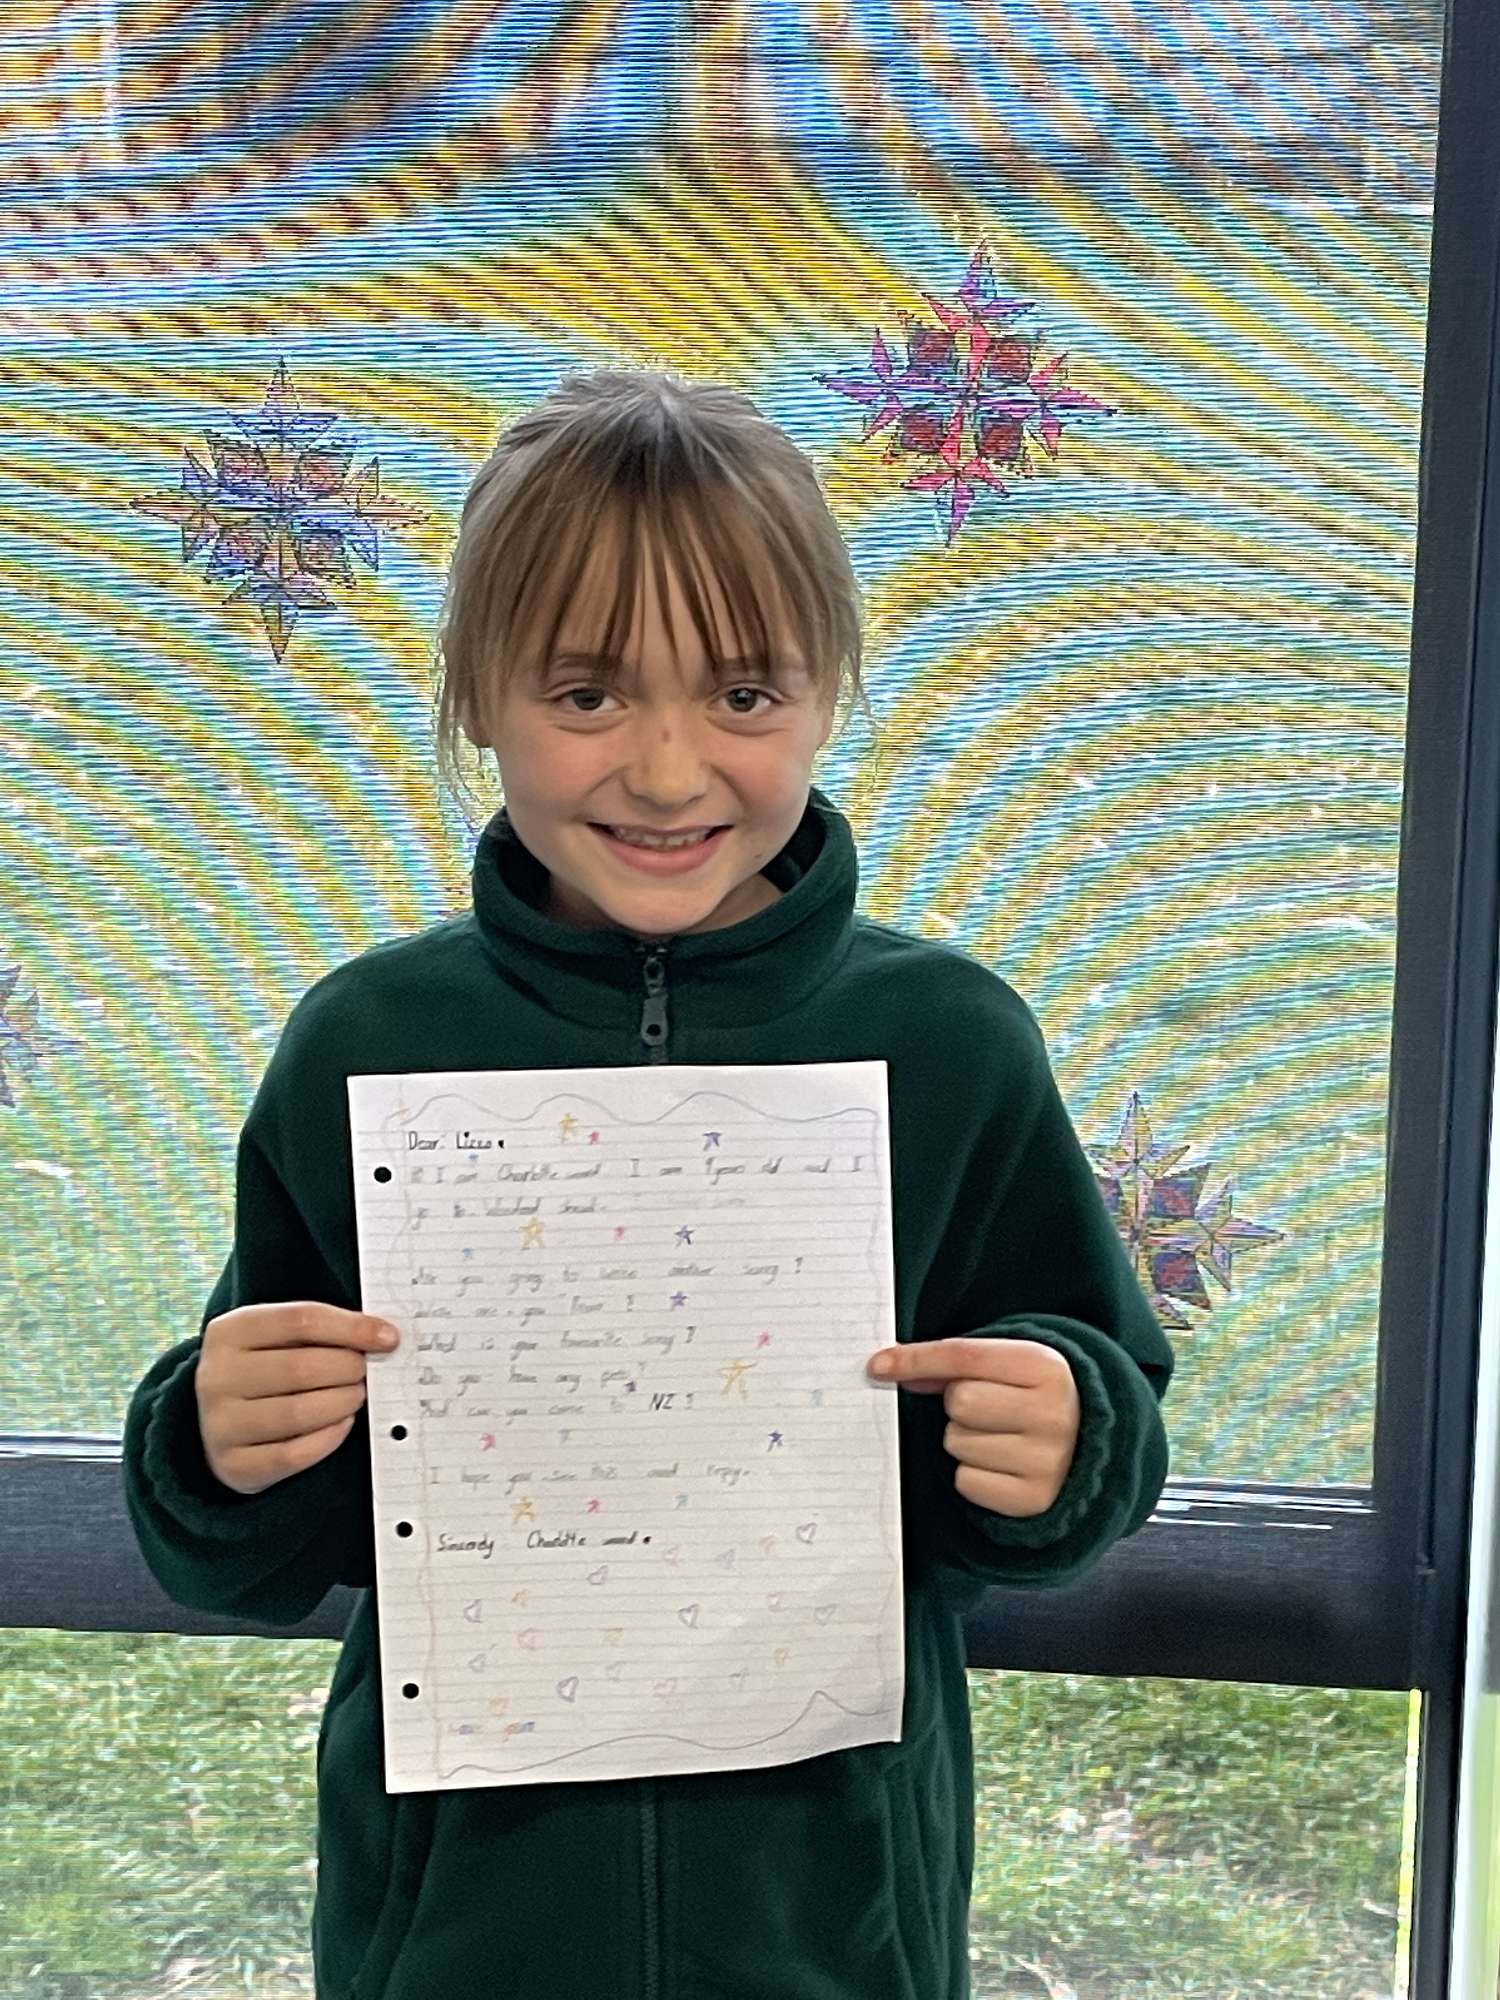 Dear Lizzo.
I am Charlotte and I am 9years old and I
go to school.
Are you going to write another song?
Were are you from?
What is your favourite song?
Do you have any pets?
And can you come to NZ?
I hope you see this and reply.
Sincerdy Charlotte
Love your